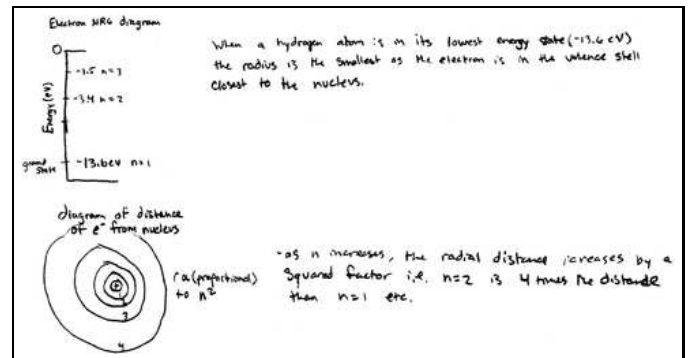 Electron NRG diagram
0
-1.5 n=3
-3.4 n=2
Energy (eV)
ground state
-13.6eV n=1
When a hydrogen atom is in its lowest energy state (-13.6 eV)
the radius is the smallest as the electron is in the valence shell
closest to the nucleus.
diagram of distance
of e⁻ from nucleus
3
4
r α (proportional)
to n²
-as n increases, the radial distance icreases by a
squared factor i.e. n=2 is 4 times the distance
than n=1 etc.